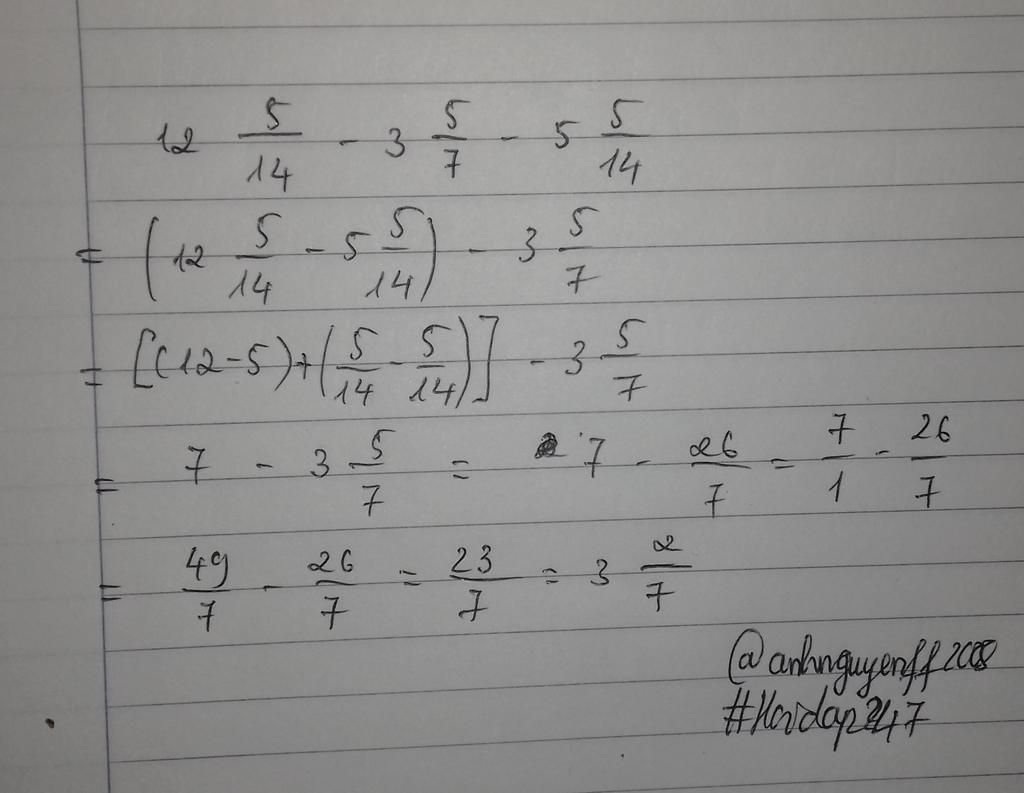 12 5/14 - 3 5/7 - 5 5/14
= (12 5/14 - 5 5/14) - 3 5/7
= [(12-5)+(5/14 - 5/14)] - 3 5/7
= 7 - 3 5/7 = 7 - 26/7 = 7/1 - 26/7
= 49/7 - 26/7 = 23/7 = 3 2/7
@anhnguyenff2008
#Hoidap247